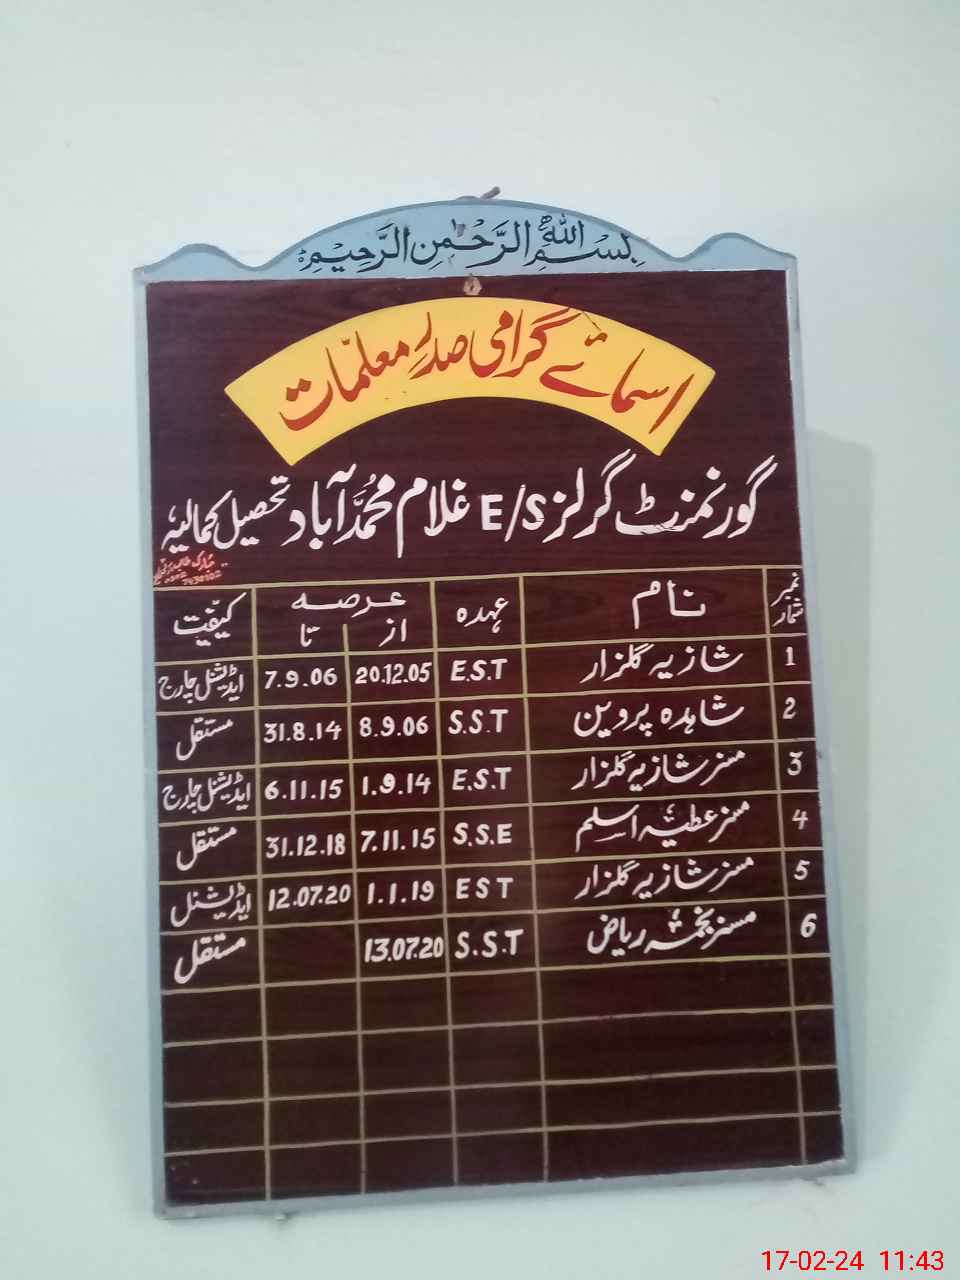 بِسْمِ اللّٰهِ الرَّحْمٰنِ الرَّحِيْمِ
اسمائے گرامی صدرِ معلّمات
گورنمنٹ گرلز E/S غلام محمّد آباد تحصیل کمالیہ
نمبر شمار نام عہدہ عرصہ کیفیّت
از تا
1 شازیہ گلزار E.S.T 20.12.05 7.9.06 ایڈیشنل چارج
2 شاہدہ پروین S.S.T 8.9.06 31.8.14 مستقل
3 مسز شازیہ گلزار E.S.T 1.9.14 6.11.15 ایڈیشنل چارج
4 مسز عطیہ اسلم S.S.E 7.11.15 31.12.18 مستقل
5 مسز شازیہ گلزار EST 1.1.19 12.07.20 ایڈیشنل
6 مسز نجمہ ریاض S.S.T 13.07.20 مستقل
17-02-24 11:43